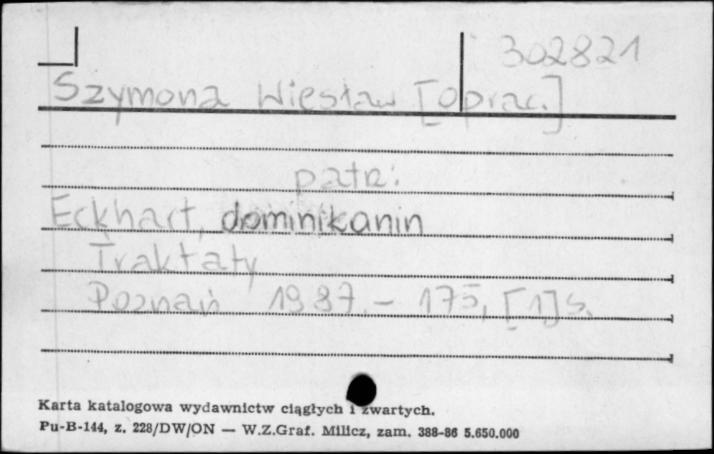 302821
Szymona Wiesław [oprac.]
patrz:
Eckhart, dominikanin
Traktaty
Poznań 1987. - 175, [1] s.
Karta katalogowa wydawnictw ciągłych i zwartych.
Pu-B-144, z. 228/DW/ON — W.Z.Graf. Milicz, zam. 388-86 5.650.000